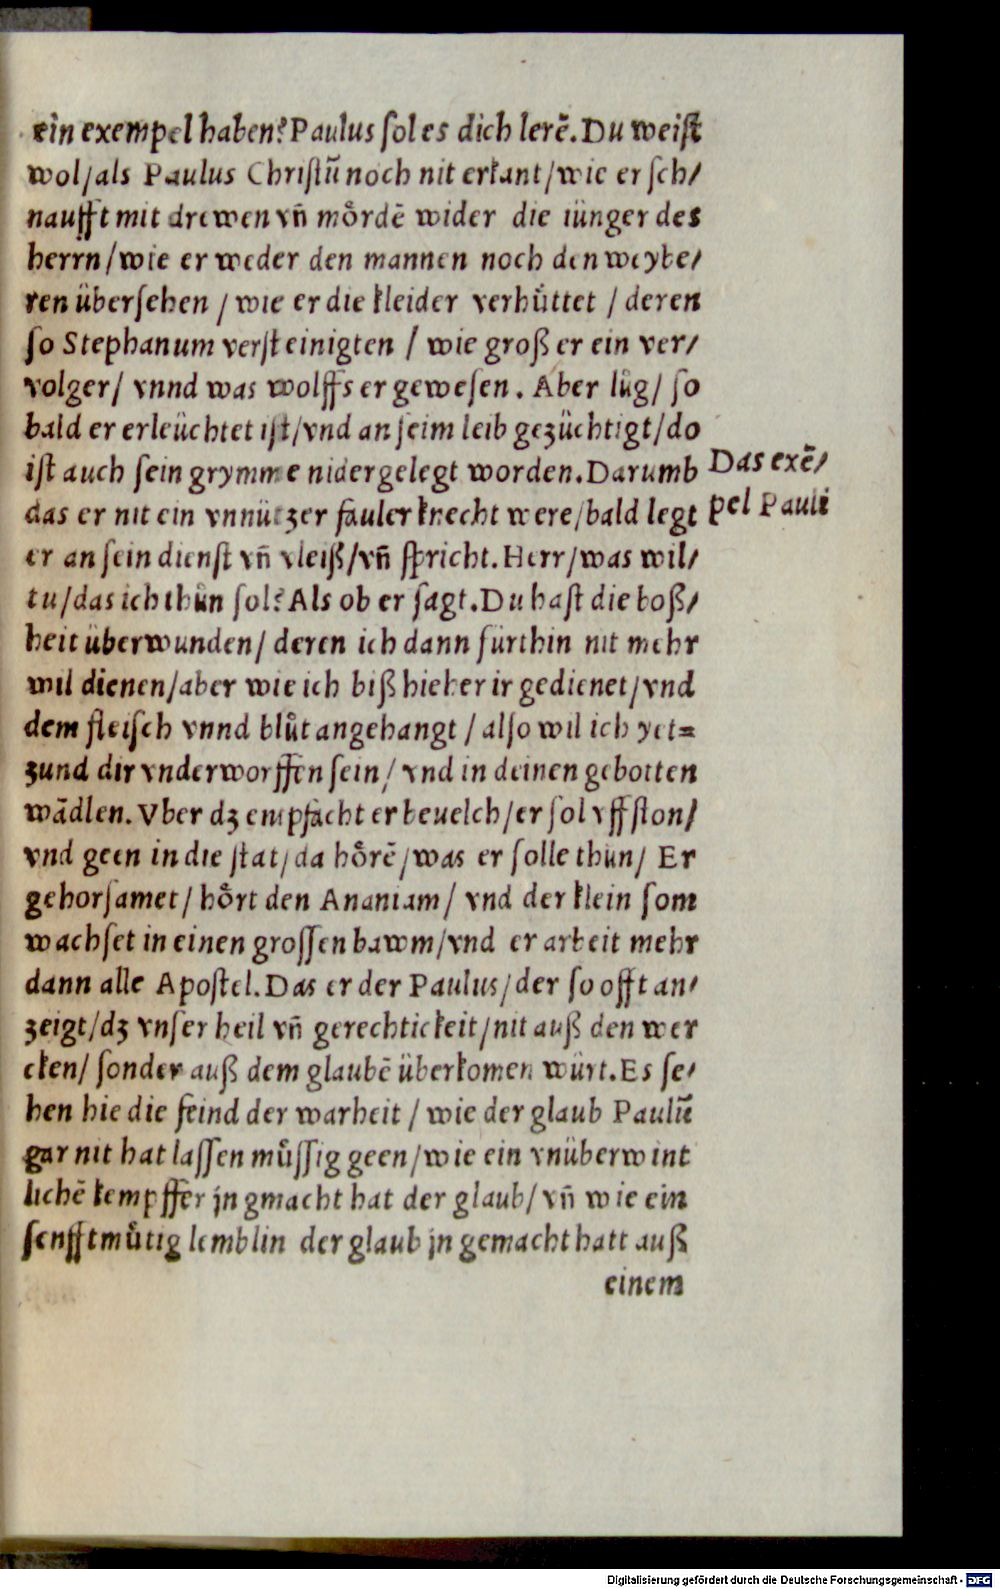 ein exempel haben? Paulus sol es dich lerē. Du weist
wol/als Paulus Christū noch nit erkant/wie er sch/
naufft mit drewen vñ moͤrdē wider die iünger des
herrn/wie er weder den mannen noch den weybe/
ren übersehen / wie er die kleider verhuͤttet / deren
so Stephanum versteinigten / wie groß er ein ver/
volger/ vnnd was wolffs er gewesen. Aber luͦg/ so
bald er erleüchtet ist/vnd an seim leib gezüchtigt/do
ist auch sein grymme nidergelegt worden. Darumb
das er nit ein vnnützer fauler knecht were/bald legt
er an sein dienst vñ vleiß/vñ spricht. Herr/was wil/
tu/das ich thuͦn sol? Als ob er sagt. Du hast die boß/
heit überwunden/ deren ich dann fürthin nit mehr
wil dienen/aber wie ich biß hieher ir gedienet/vnd
dem fleisch vnnd bluͦt angehangt / also wil ich yet=
zund dir vnderworffen sein/ vnd in deinen gebotten
wādlen. Vber dz empfacht er beuelch/er sol vffston/
vnd geen in die stat/da hoͤrē/was er solle thun/ Er
gehorsamet/ hoͤrt den Ananiam/ vnd der klein som
wachset in einen grossen bawm/vnd er arbeit mehr
dann alle Apostel. Das er der Paulus/der so offt an/
zeigt/dz vnser heil vñ gerechtickeit/nit auß den wer
cken/ sonder auß dem glaubē überkomen würt. Es se/
hen hie die feind der warheit / wie der glaub Paulū
gar nit hat lassen muͤssig geen/wie ein vnüberwint
lichē kempffer jn gmacht hat der glaub/ vñ wie ein
senfftmuͤtig lemblin der glaub jn gemacht hatt auß
einem
Das exē/
pel Pauli
Digitalisierung gefördert durch die Deutsche Forschungsgemeinschaft - DFG